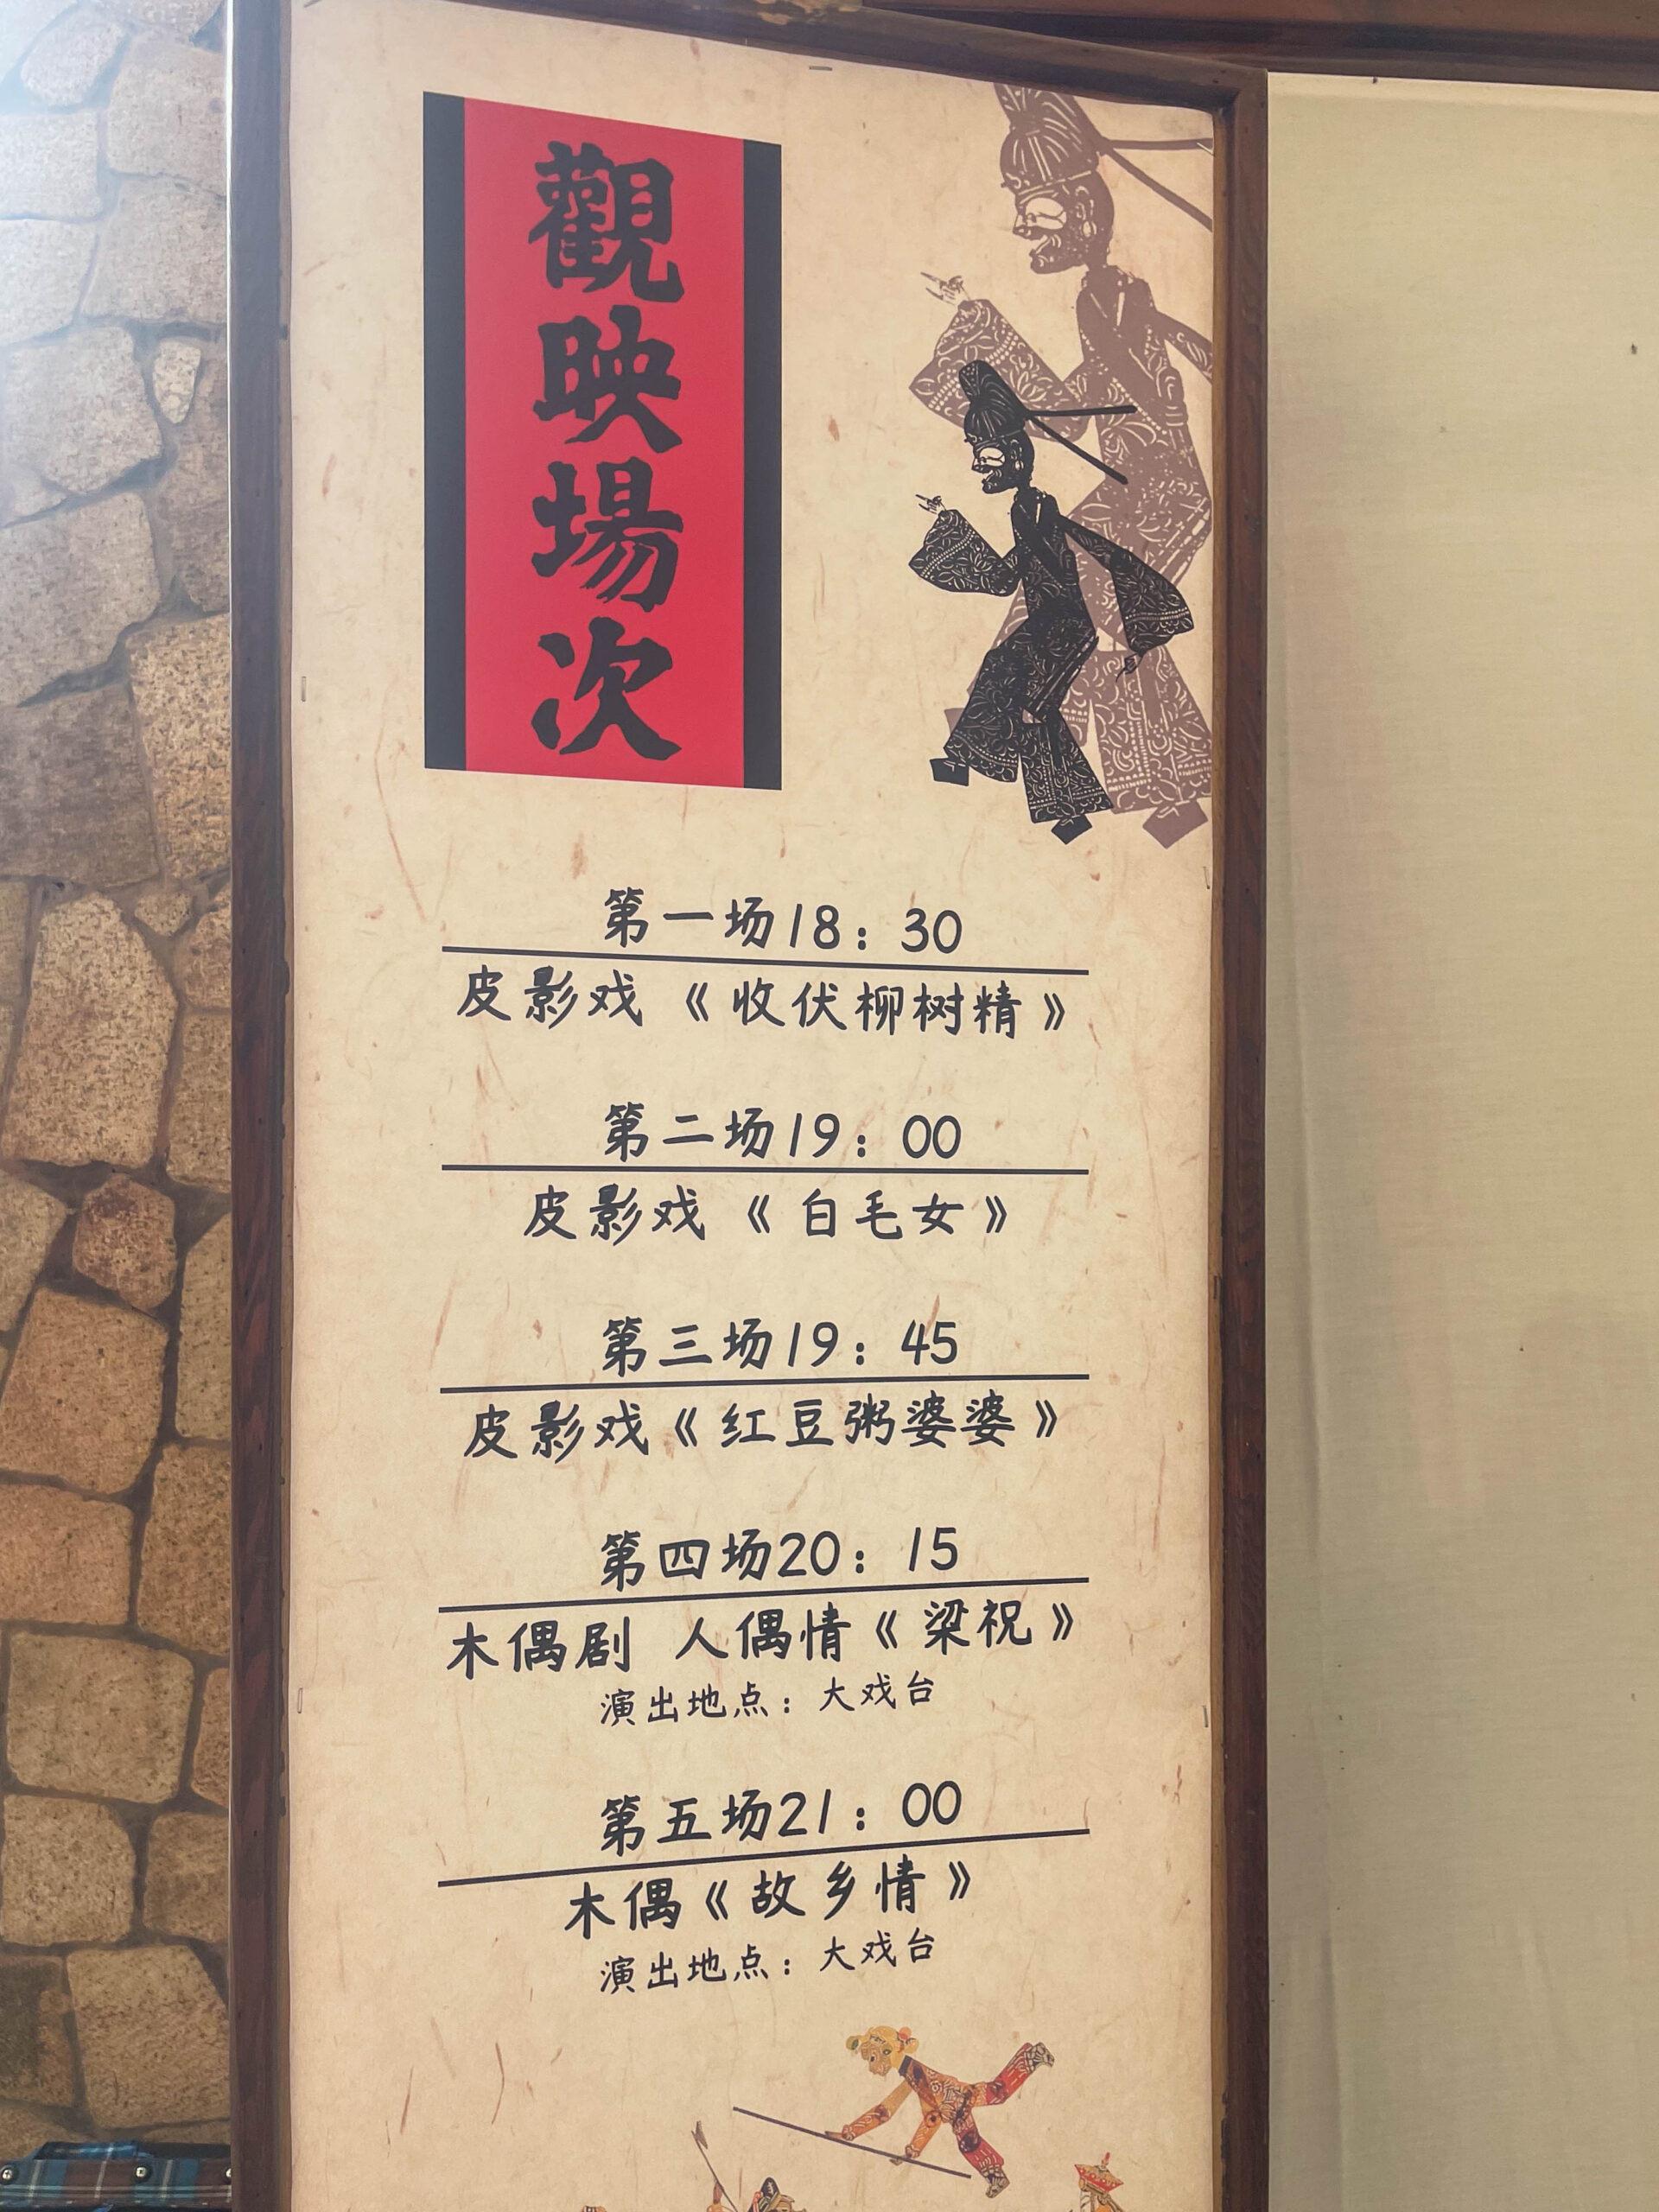 觀映場次
第一场18：30
皮影戏 《收伏柳树精》
第二场19：00
皮影戏 《白毛女》
第三场19：45
皮影戏《红豆粥婆婆》
第四场20：15
木偶剧 人偶情《梁祝》
演出地点：大戏台
第五场21：00
木偶《故乡情》
演出地点：大戏台